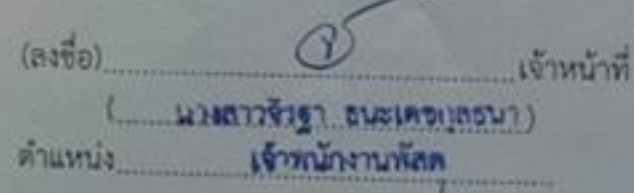 (ลงชื่อ)..........เจ้าหน้าที่
(......นางสาวจิรฐา ธนะเดชกุลธนา)
ตำแหน่ง..........เจ้าพนักงานพัสดุ..........